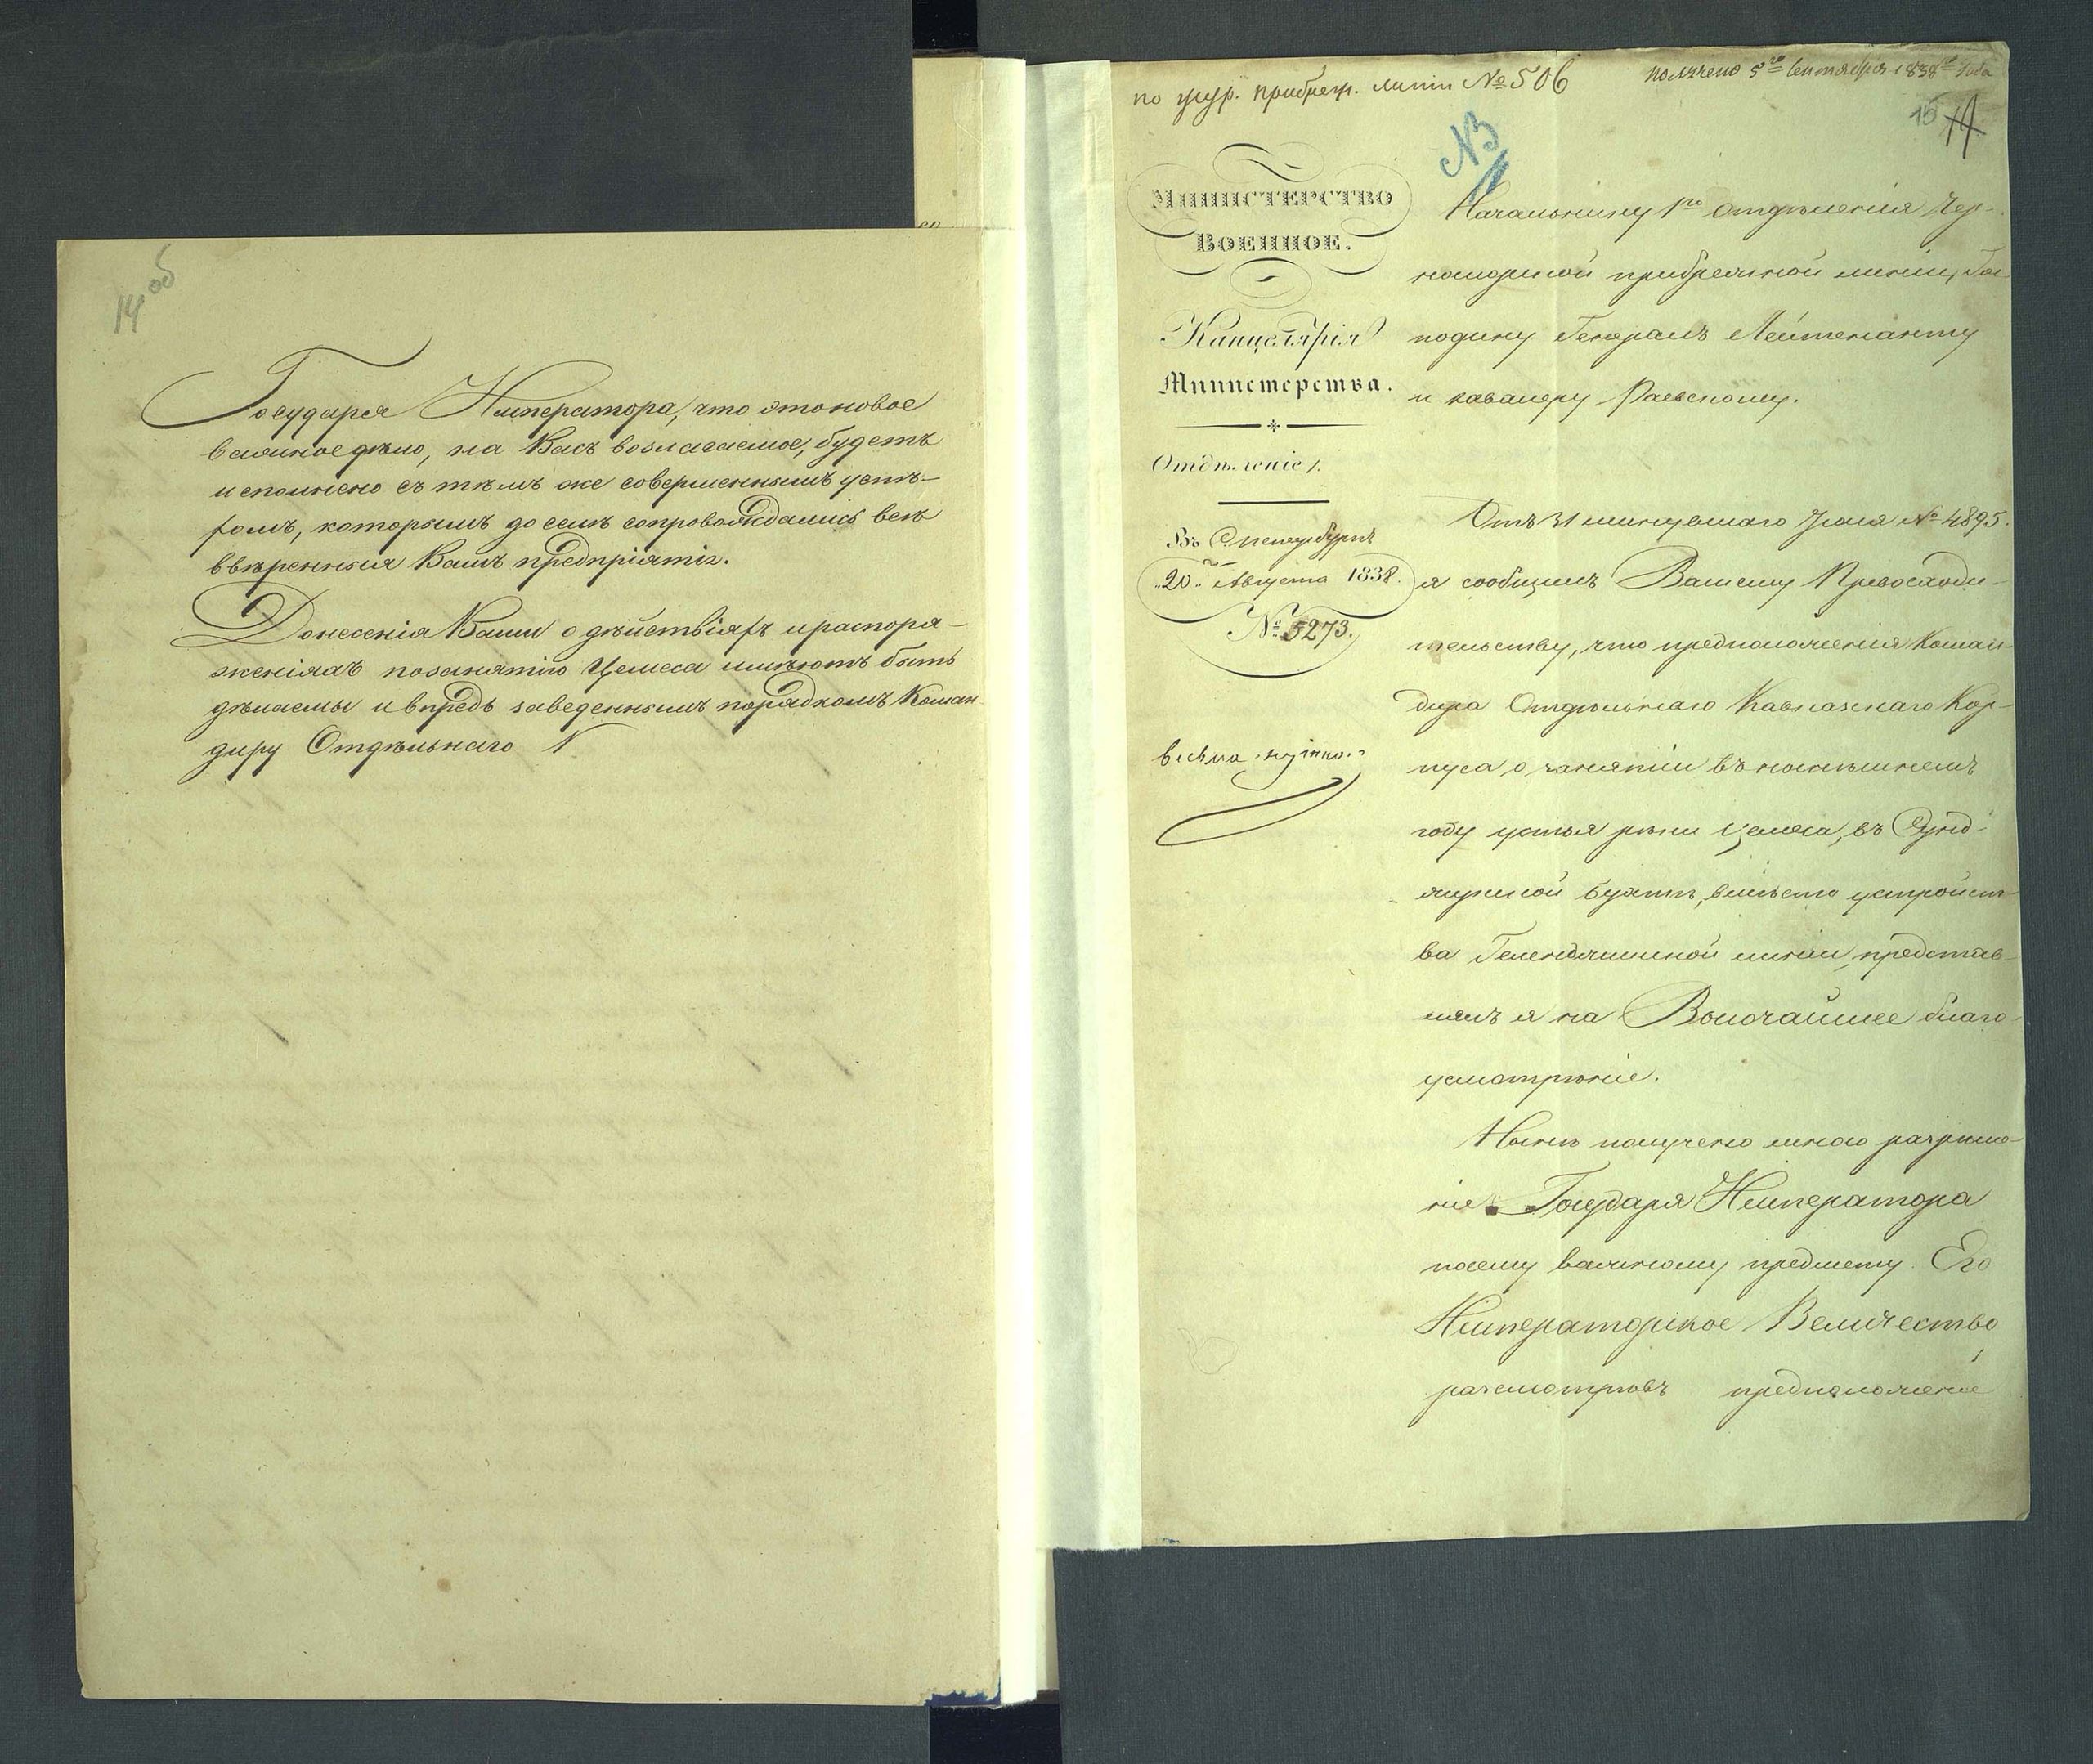 14 об
Государя Императора, что это новое
важное дѣло, на Васъ возлагаемое, будетъ
исполнено съ тѣмъ же совершеннымъ успѣ-
хомъ, которымъ до селѣ сопровождались всѣ
ввѣренныя Вамъ предпріятія.
Донесенія Ваши о дѣйствіяхъ и распоря-
женіяхъ по занятію Цемеса имѣютъ быть
дѣлаемы и впредь заведеннымъ порядкомъ Коман-
диру Отдѣльнаго
по жур. прибреж. линіи № 506
получено 5го Сентября 1838го года
15
14
МИНИСТЕРСТВО
ВОЕННОЕ.
Канцелярія
Министерства.
Отдѣленіе 1.
Въ С. Петербургѣ
"20" Августа 1838.
№ 5273.
весьма нужное.
Начальнику 1го отдѣленія Чер-
номорской прибрежной линіи, Гос-
подину Генералъ Лейтенанту
и кавалеру Раевскому.
Отъ 31 минувшаго Іюля № 4895.
я сообщилъ Вашему Превосходи-
тельству, что предположенія Коман-
дира Отдѣльнаго Кавказскаго Кор-
пуса о занятіи въ нынѣшнемъ
году устья рѣки Цемеса, въ Суяд-
жукской бухтѣ, вмѣсто устройст-
ва Геленджикской линіи, представ-
лялъ я на Высочайшее благо-
усмотрѣніе.
Нынѣ получено мною разрѣше-
ніе Государя Императора
по сему важному предмету. Его
Императорское Величество,
разсмотрѣвъ предположеніе